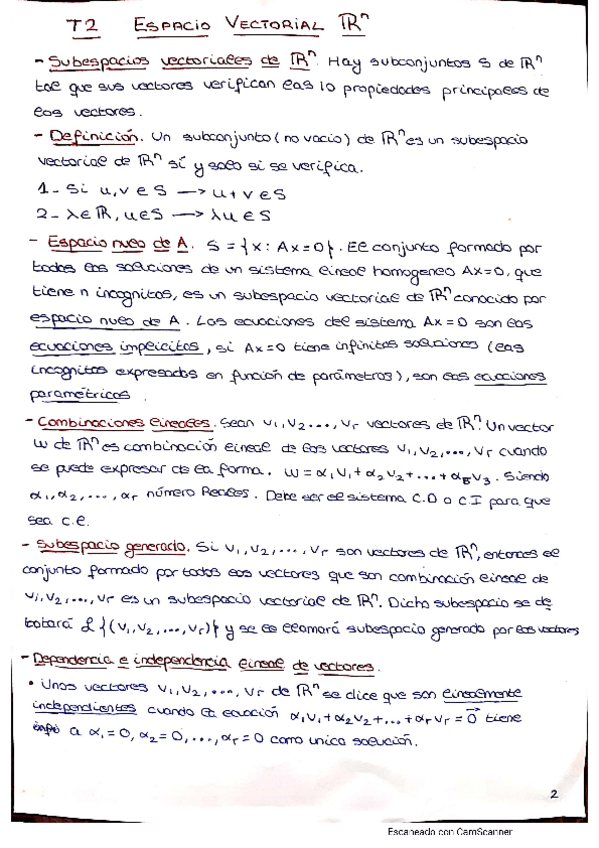 T2 ESPACIO VECTORIAL ℝⁿ
- Subespacios vectoriales de ℝⁿ. Hay subconjuntos S de ℝⁿ
tal que sus vectores verifican las 10 propiedades principales de
los vectores.
- Definición. Un subconjunto (no vacio) de ℝⁿ es un subespacio
vectorial de ℝⁿ sí y solo si se verifica.
1- Si u,v ∈ S → u+v ∈ S
2- λ∈ℝ, u∈S → λu ∈ S
- Espacio nulo de A. S = {x: Ax=0}. El conjunto formado por
todas las soluciones de un sistema lineal homogeneo Ax=0, que
tiene n incognitas, es un subespacio vectorial de ℝⁿ conocido por
espacio nulo de A. Las ecuaciones del sistema Ax=0 son las
ecuaciones implicitas, si Ax=0 tiene infinitas soluciones (las
incognitas expresadas en función de parámetros), son las ecuaciones
paramétricas.
- Combinaciones lineales. Sean v₁,v₂...,vᵣ vectores de ℝⁿ. Un vector
w de ℝⁿ es combinación lineal de los vectores v₁,v₂,...,vᵣ cuando
se puede expresar de la forma. w=α₁v₁+α₂v₂+...+αᵣv₃. Siendo
α₁,α₂,...,αᵣ número Reales. Debe ser el sistema C.D o C.I para que
sea c.l.
- Subespacio generado. Si v₁,v₂,...,vᵣ son vectores de ℝⁿ, entonces el
conjunto formado por todos los vectores que son combinación lineal de
v₁,v₂,...,vᵣ es un subespacio vectorial de ℝⁿ. Dicho subespacio se de
totará ℒ{(v₁,v₂,...,vᵣ)} y se le llamará subespacio generado por los vectores
- Dependencia e independencia lineal de vectores.
• Unos vectores v₁,v₂,...,vᵣ de ℝⁿ se dice que son linealmente
independientes cuando la ecuación α₁v₁+α₂v₂+...+αᵣvᵣ=0⃗ tiene
a α₁=0, α₂=0,...,αᵣ=0 como unica solución.
2
Escaneado con CamScanner